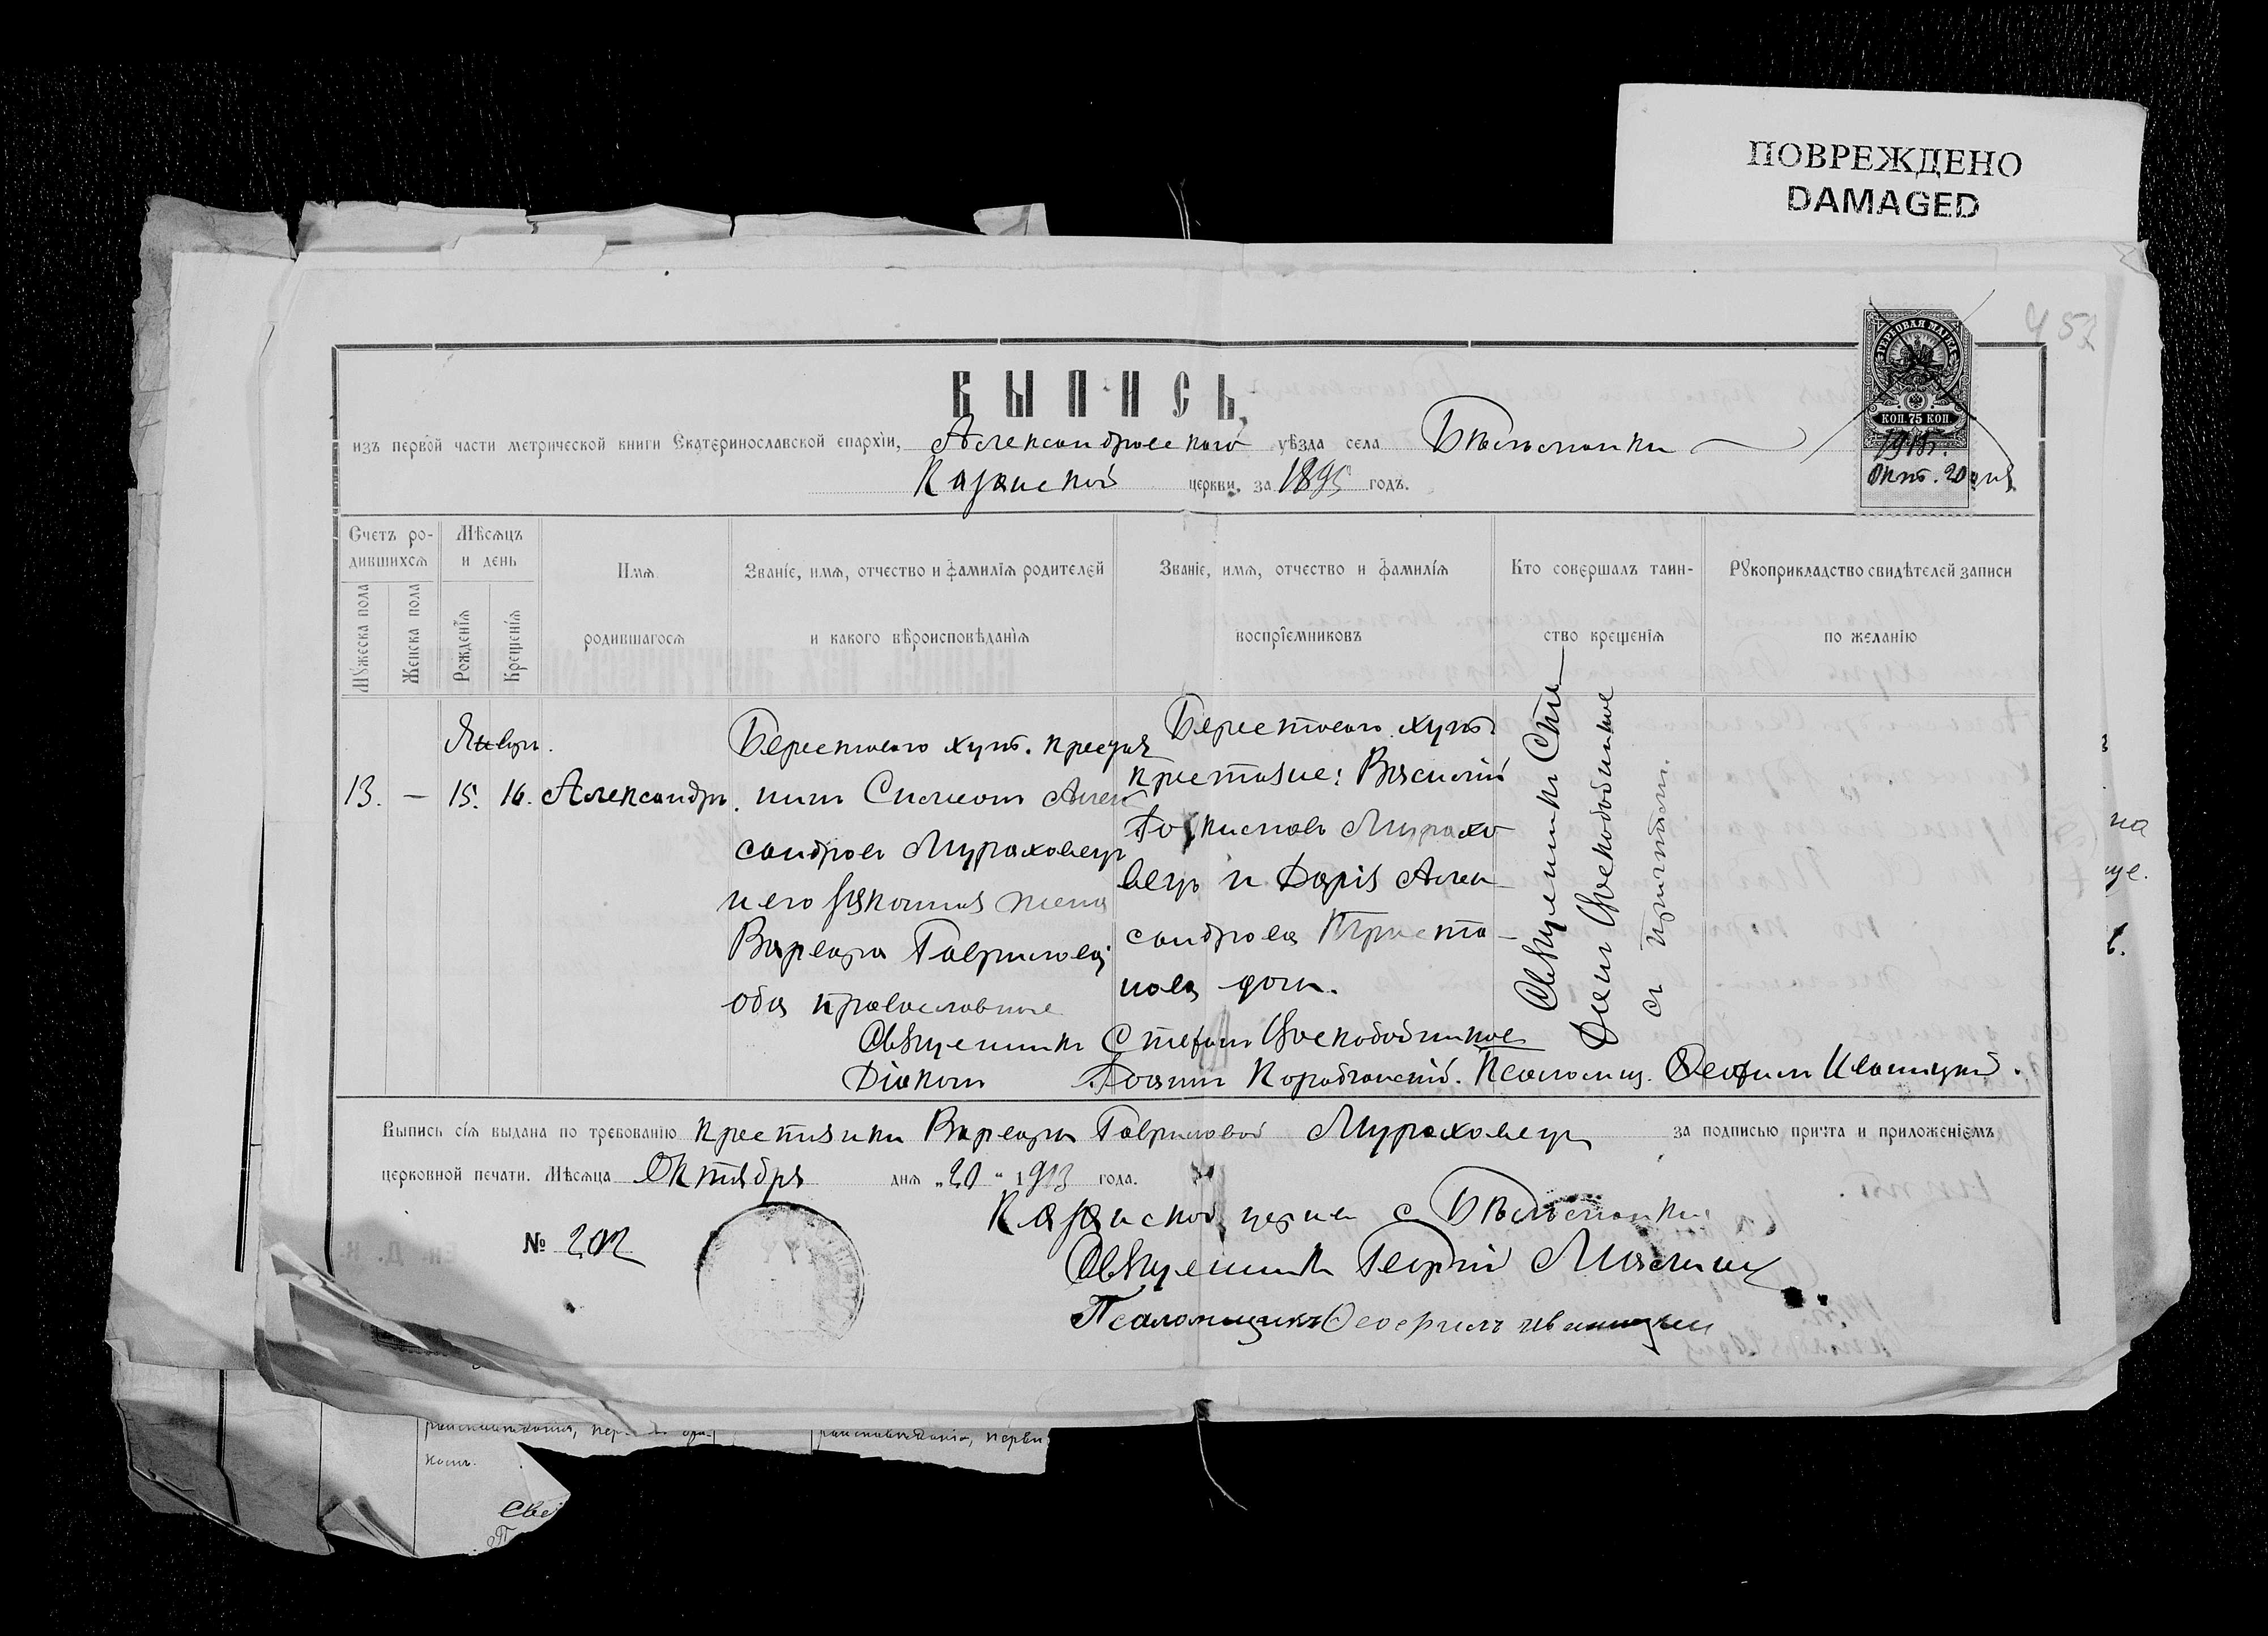 ПОВРЕЖДЕНО
DAMAGED
ГЕРБОВАЯ МАРКА
КОП. 75 КОП.
Окт. 20 дня
ВЫПИСЬ
изъ первой части метрической книги Екатеринославской епархіи, Александровскаго уѣзда села Бѣломанки
Казанской церкви, за 1895 годъ.
Счетъ ро-
дившихся
Мѣсяцъ
и день
Имя
родившагося
Званіе, имя, отчество и фамилія родителей
и какого вѣроисповѣданія
Званіе, имя, отчество и фамилія
воспріемниковъ
Кто совершалъ таин-
ство крещенія
Рукоприкладство свидѣтелей записи
по желанію
Мужеска пола
Женска пола
Рожденія
Крещенія
Январь.
13. — 15. 16. Александръ.
Берестоваго хут. крестья
нинъ Симеонъ Алек
сандровъ Мураховецъ
и его законная жена
Варвара Гаврилова
оба православные
Берестоваго хут.
крестьяне: Василій
Мурахо
вецъ и Дарія Алек
сандрова Христа
нова дочь.
Священникъ Сте
фанъ
съ причтомъ.
Священникъ Стефанъ
Діаконъ Іоаннъ Псаломщ. Феофилъ Иваницкій.
Выпись сія выдана по требованію крестьянки Варвары Гавриловой Мураховецъ за подписью причта и приложеніемъ
церковной печати. Мѣсяца Октября дня „20" 1913 года.
№ 202
Казанской церкви с. Бѣломанки
Священникъ Георгій
Псаломщикъ Феофилъ Иваницкій